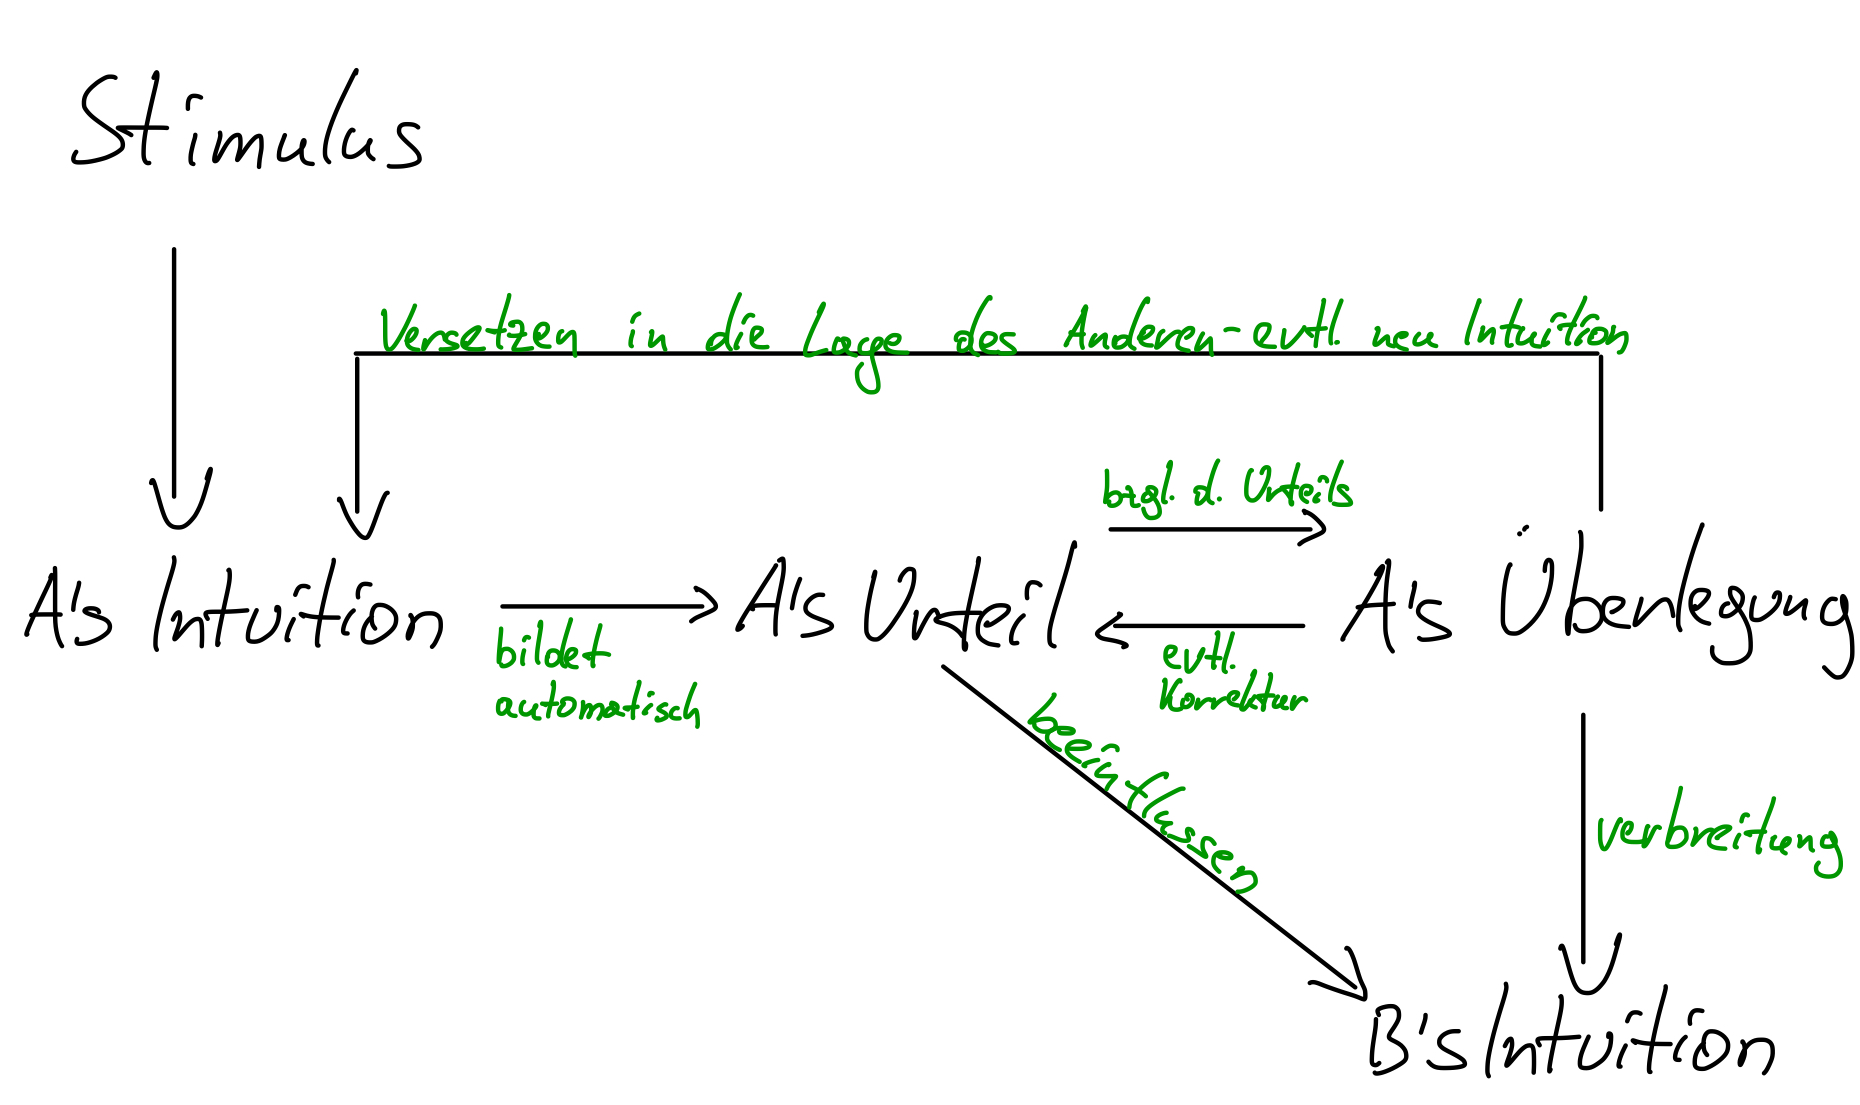 Stimulus
Versetzen in die Lage des Anderen - evtl. neu Intuition
bzgl. d. Urteils
A's Intuition
A's Urteil
A's Überlegung
bildet
automatisch
evtl.
Korrektur
beeinflussen
verbreitung
B's Intuition